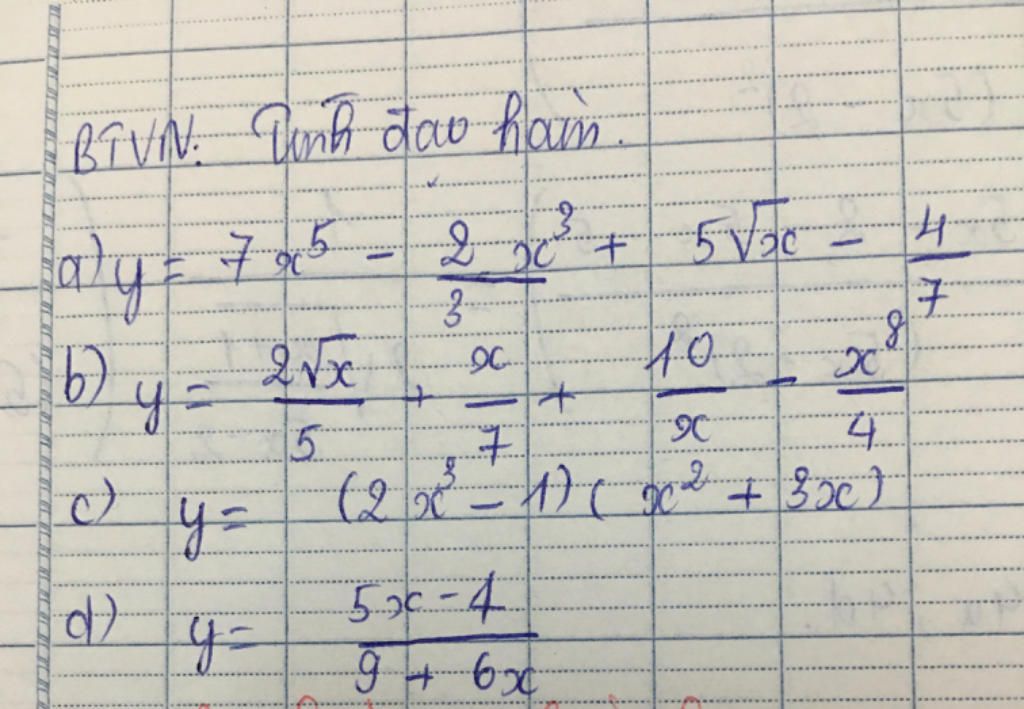 BTVN: Tính đạo hàm.
a) y = 7x⁵ - 2x³/3 + 5√x - 4/7
b) y = 2√x/5 + x/7 + 10/x - x⁸/4
c) y = (2x³ - 1)(x² + 3x)
d) y = (5x - 4)/(9 + 6x)